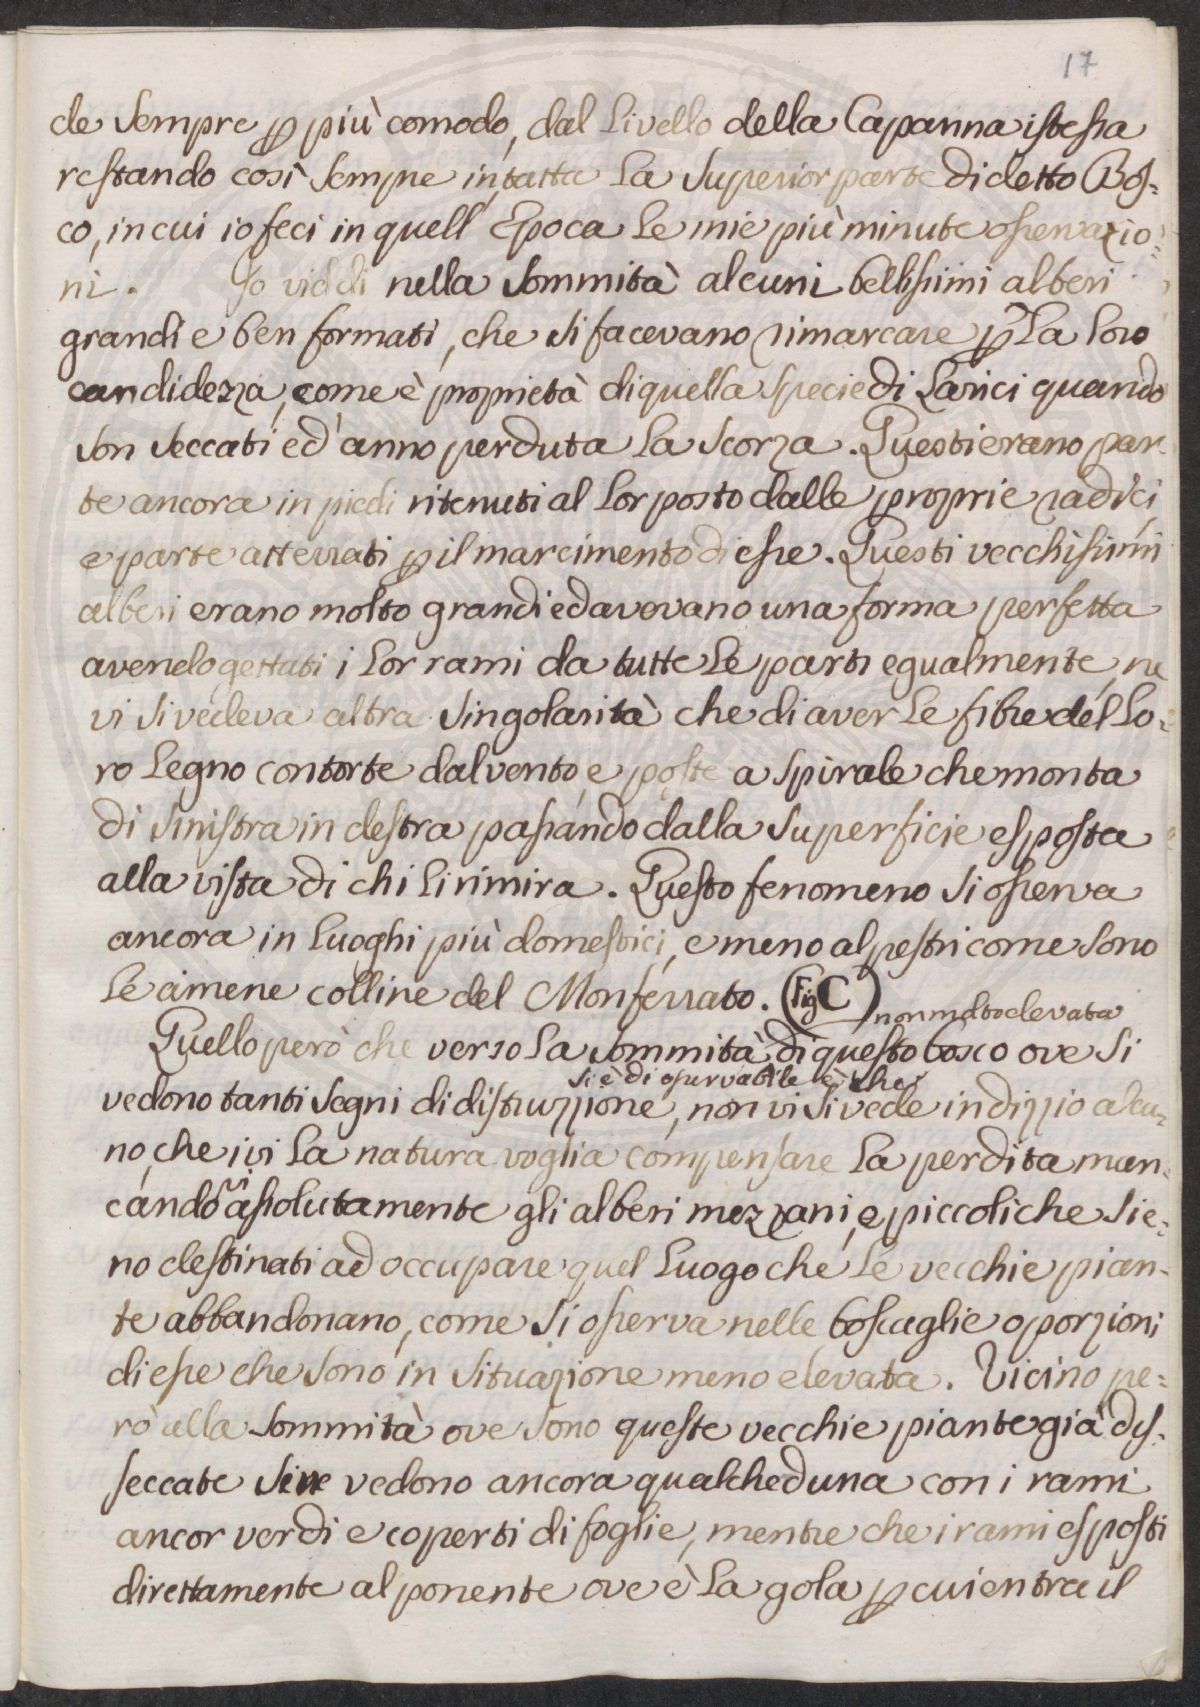 17
de sempre p più comodo, dal livello della Capanna istessa
restando così sempre intatta la superior parte di detto Bos=
co, in cui io feci in quell' Epoca le mie più minute osservazio=
ni. Jo viddi nella sommità alcuni bellissimi alberi
grandi e ben formati, che si facevano rimarcare p la loro
candidezza, come è proprietà di quella specie di Larici quando
son seccati ed' anno perduta la scorza. Questi erano par=
te ancora in piedi ritenuti al lor posto dalle proprie radici
e parte atterrati p il marcimento di esse. Questi vecchissimi
alberi erano molto grandi ed avevano una forma perfetta
avendo gettati i lor rami da tutte le parti egualmente, ne
vi si vedeva altra singolarità che di aver le fibre del lo=
ro legno contorte dal vento, e poste a spirale che monta
di sinistra in destra passando dalla superficie esposta
alla vista di chi li rimira. Questo fenomeno si osserva
ancora in luoghi più domestici, e meno alpestri come sono
le amene colline del Monferrato. (Fig C)
non molto elevata
Quello però che verso la sommità di questo bosco ove si
si è di osservabile è, che
vedono tanti segni di distruzzione, non vi si vede indizzio alcu=
no, che ivi la natura voglia compensare la perdita man=
cando assolutamente gli alberi mezzani, e piccoli che sie=
no destinati ad occupare quel luogo che le vecchie pian=
te abbandonano, come si osserva nelle boscaglie o porzioni
di esse che sono in situazione meno elevata. Vicino pe=
rò alla sommità ove sono queste vecchie piante già dis=
seccate se ne vedono ancora qualcheduna con i rami
ancor verdi e coperti di foglie, mentre che i rami esposti
direttamente al ponente ove è la gola p cui entra il